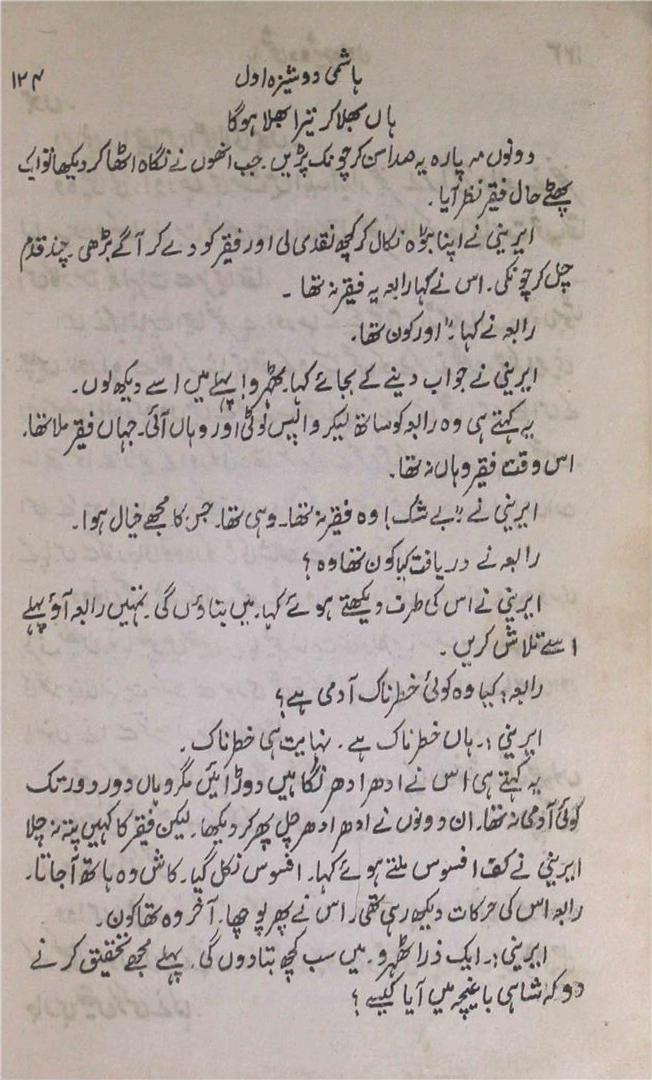 ہاشمی دوشیزہ اول ۱۲۴
ہاں بھلا کر تیرا بھلا ہوگا
دونوں مہ پارہ یہ صدا سن کر چونک پڑیں۔ جب انھوں نے نگاہ اٹھا کر دیکھا تو ایک
پھٹے حال فقیر نظر آیا۔
ایرینی نے اپنا بڑہ نکال کر کچھ نقدی لی اور فقیر کو دے کر آگے بڑھی۔ چند قدم
چل کر چونکی۔ اس نے کہا رابعہ یہ فقیر نہ تھا۔
رابعہ نے کہا۔" اور کون تھا۔
ایرینی نے جواب دینے کے بجائے کہا۔ ٹھہرو! پہلے میں اسے دیکھ لوں۔
یہ کہتے ہی وہ رابعہ کو ساتھ لیکر واپس لوٹی اور وہاں آئی۔ جہاں فقیر ملا تھا۔
اس وقت فقیر وہاں نہ تھا۔
ایرینی نے "بے شک! وہ فقیر نہ تھا۔ وہی تھا۔ جس کا مجھے خیال ہوا۔
رابعہ نے دریافت کیا کون تھا وہ؟
ایرینی نے اس کی طرف دیکھتے ہوئے کہا۔ میں بتاؤں گی۔ نہیں رابعہ آؤ پہلے
اسے تلاش کریں۔
رابعہ؛ کیا وہ کوئی خطرناک آدمی ہے؟
ایرینی :۔ ہاں خطرناک ہے۔ نہایت ہی خطرناک۔
یہ کہتے ہی اس نے ادھر ادھر نگاہیں دوڑائیں مگر وہاں دور دور تک
کوئی آدمی نہ تھا۔ ان دونوں نے ادھر ادھر چل پھر کر دیکھا۔ لیکن فقیر کا کہیں پتہ نہ چلا
ایرینی نے کف افسوس ملتے ہوئے کہا۔ افسوس نکل گیا۔ کاش وہ ہاتھ آجاتا۔
رابعہ اس کی حرکات دیکھ رہی تھی۔ اس نے پھر پوچھا۔ آخر وہ تھا کون۔
ایرینی :۔ ایک ذرا ٹھہرو۔ میں سب کچھ بتادوں گی۔ پہلے مجھے تحقیق کرنے
دو کہ شاہی باغیچہ میں آیا کیسے؟